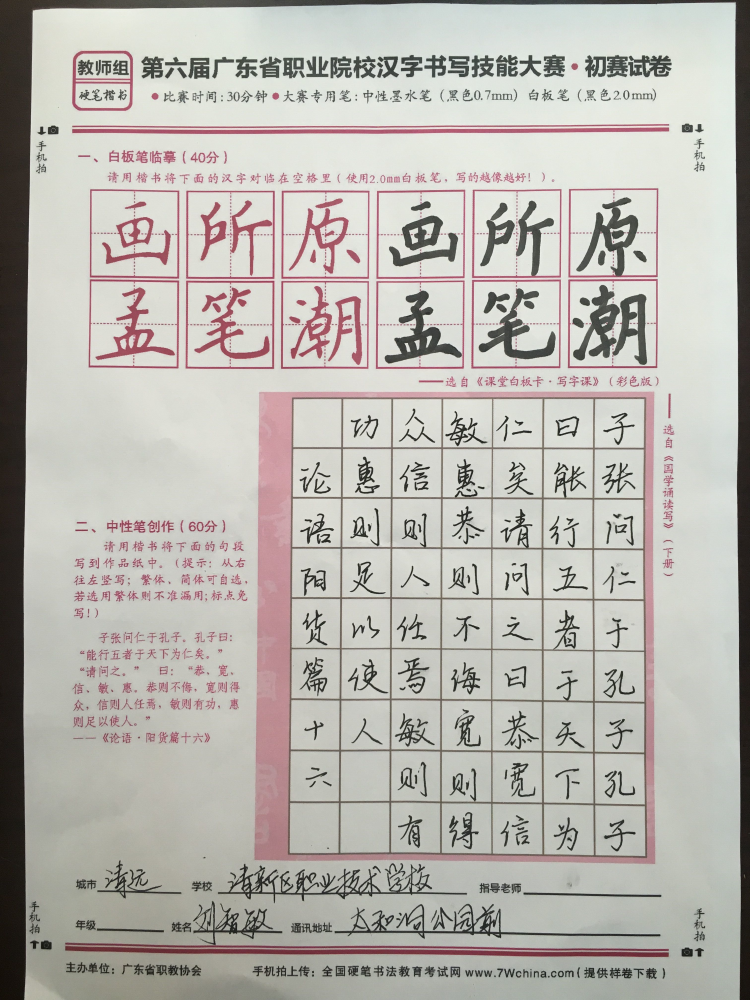 教师组
硬笔楷书
第六届广东省职业院校汉字书写技能大赛·初赛试卷
●比赛时间:30分钟●大赛专用笔:中性墨水笔(黑色0.7mm) 白板笔(黑色2.0mm)
手机拍
手机拍
一、白板笔临摹(40分)
请用楷书将下面的汉字对临在空格里(使用2.0mm白板笔,写的越像越好!)。
画所原画所原
孟笔潮孟笔潮
——选自《课堂白板卡·写字课》(彩色版)
——选自《国学诵读写》(下册)
二、中性笔创作(60分)
请用楷书将下面的句段
写到作品纸中。(提示:从右
往左竖写;繁体、简体可自选,
若选用繁体则不准漏用;标点免
写!)
子张问仁于孔子。孔子曰:
“能行五者于天下为仁矣。”
“请问之。” 曰:“恭、宽、
信、敏、惠。恭则不侮,宽则得
众,信则人任焉,敏则有功,惠
则足以使人。”
——《论语·阳货篇十六》
子张问仁于孔子孔子
曰能行五者于天下为
仁矣请问之曰恭宽信
敏惠恭则不侮宽则得
众信则人任焉敏则有
功惠则足以使人
论语阳货篇十六
城市 清远 学校 清新区职业技术学校 指导老师
年级 姓名 刘智敏 通讯地址 太和洞公园前
手机拍
手机拍
主办单位:广东省职教协会 手机拍上传:全国硬笔书法教育考试网 www.7Wchina.com(提供样卷下载)